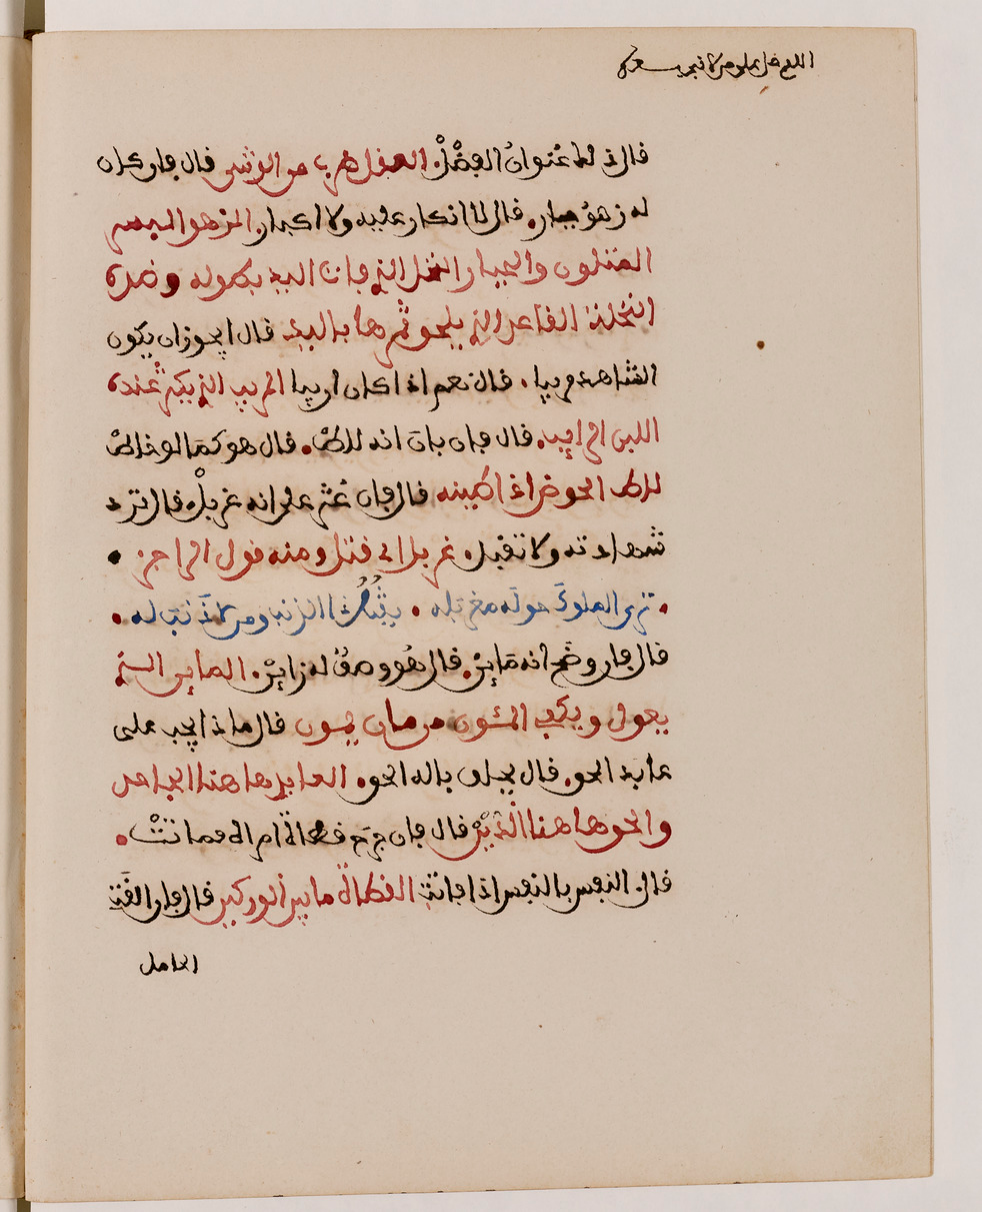 اللهم صل على من لا نبي بعده
قال ذلك عنوانُ الفضْلْ. العقل ضرب من الوشي قال فان كان
له زهوُ جبار. قال لا انكار عليه ولا اكبار. الزهو البسر
المتلون والجبار النخل الذي فات اليد بطوله وضده
النخلة القاعد التي يلحق ثمرها باليد. قال ايجوز ان يكون
الشاهد مريبا. قال نعم اذا كان اريبا المريب الذي يكثر عنده
اللبن الرايب. قال فان بان انه لاط. قال هو كما لو خاط
لاط الحوض اذا طينه قال فان عُثر على انه غربلْ. قال ترد
شهادته ولا تقبل. غربل اي قتل ومنه قول الراجز
ترى الملوكَ حوله مغربله. يقتُل ذا الذنب ومن لا ذنب له.
قال فان وضح انه مَاين. قال هُو وصفُ له زاين. الماين الذي
يعول ويكفي المئون من مان يمون قال ماذا يجب على
عابد الحق. قال يحلف باله الحق. العابد هاهنا الجاحد
والحق هاهنا الدَّيْن قال فان جرح قطاة امراة فماتتْ.
قال. النفس بالنفس اذا فاتت القطاة ما بين الوركين قال فان القت
الحامل